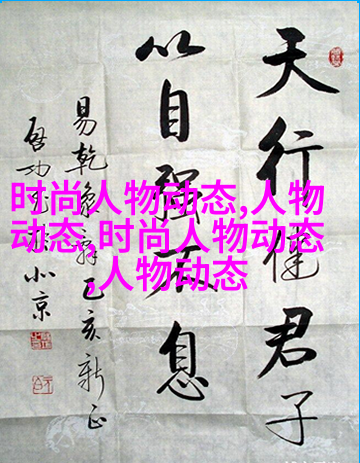 天行健君子
以自强不息
易乾象辞己亥新正
启功书於北京
时尚人物动态,人物
动态,时尚人物动态
,人物动态